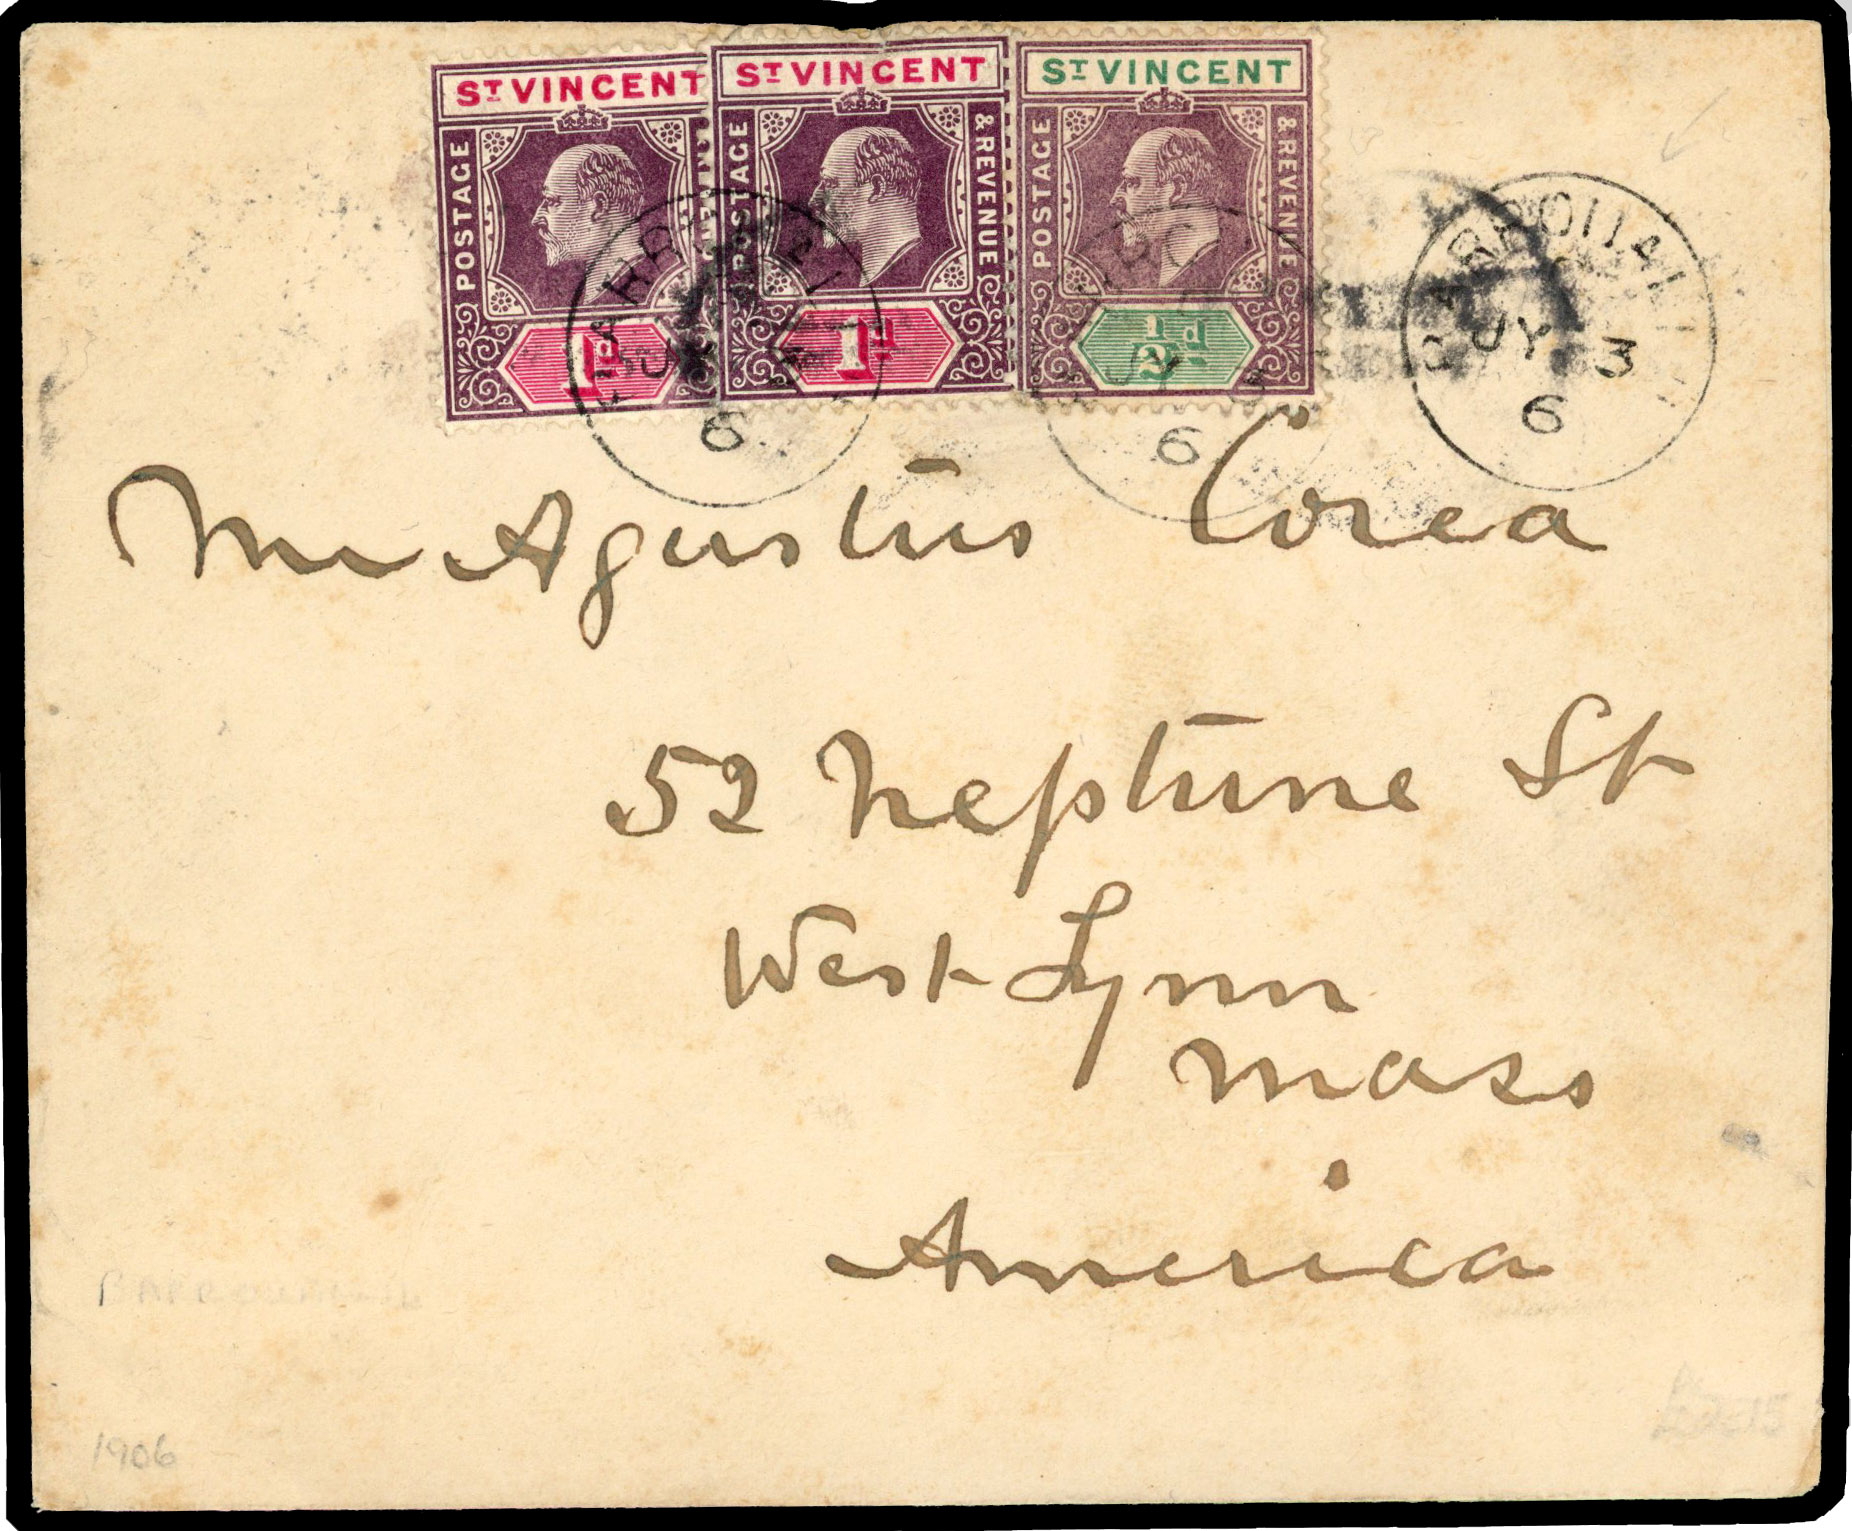 ST VINCENT ST VINCENT ST VINCENT
POSTAGE POSTAGE & REVENUE POSTAGE & REVENUE
1d 1d 1/2d
BARROUALLIE
JY 3
6
JY
6
JY 3
6
Mr Agustus Corea
52 Neptune St
West Lynn
Mass
America
1906